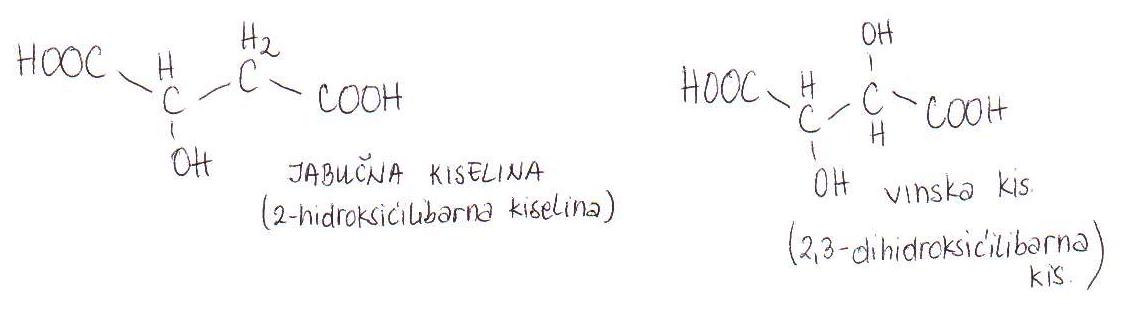 HOOC H C H2 C COOH
OH
JABUČNA KISELINA
(2-hidroksićilibarna kiselina)
OH
HOOC H C C H COOH
OH
vinska kis.
(2,3-dihidroksićilibarna
kis.)